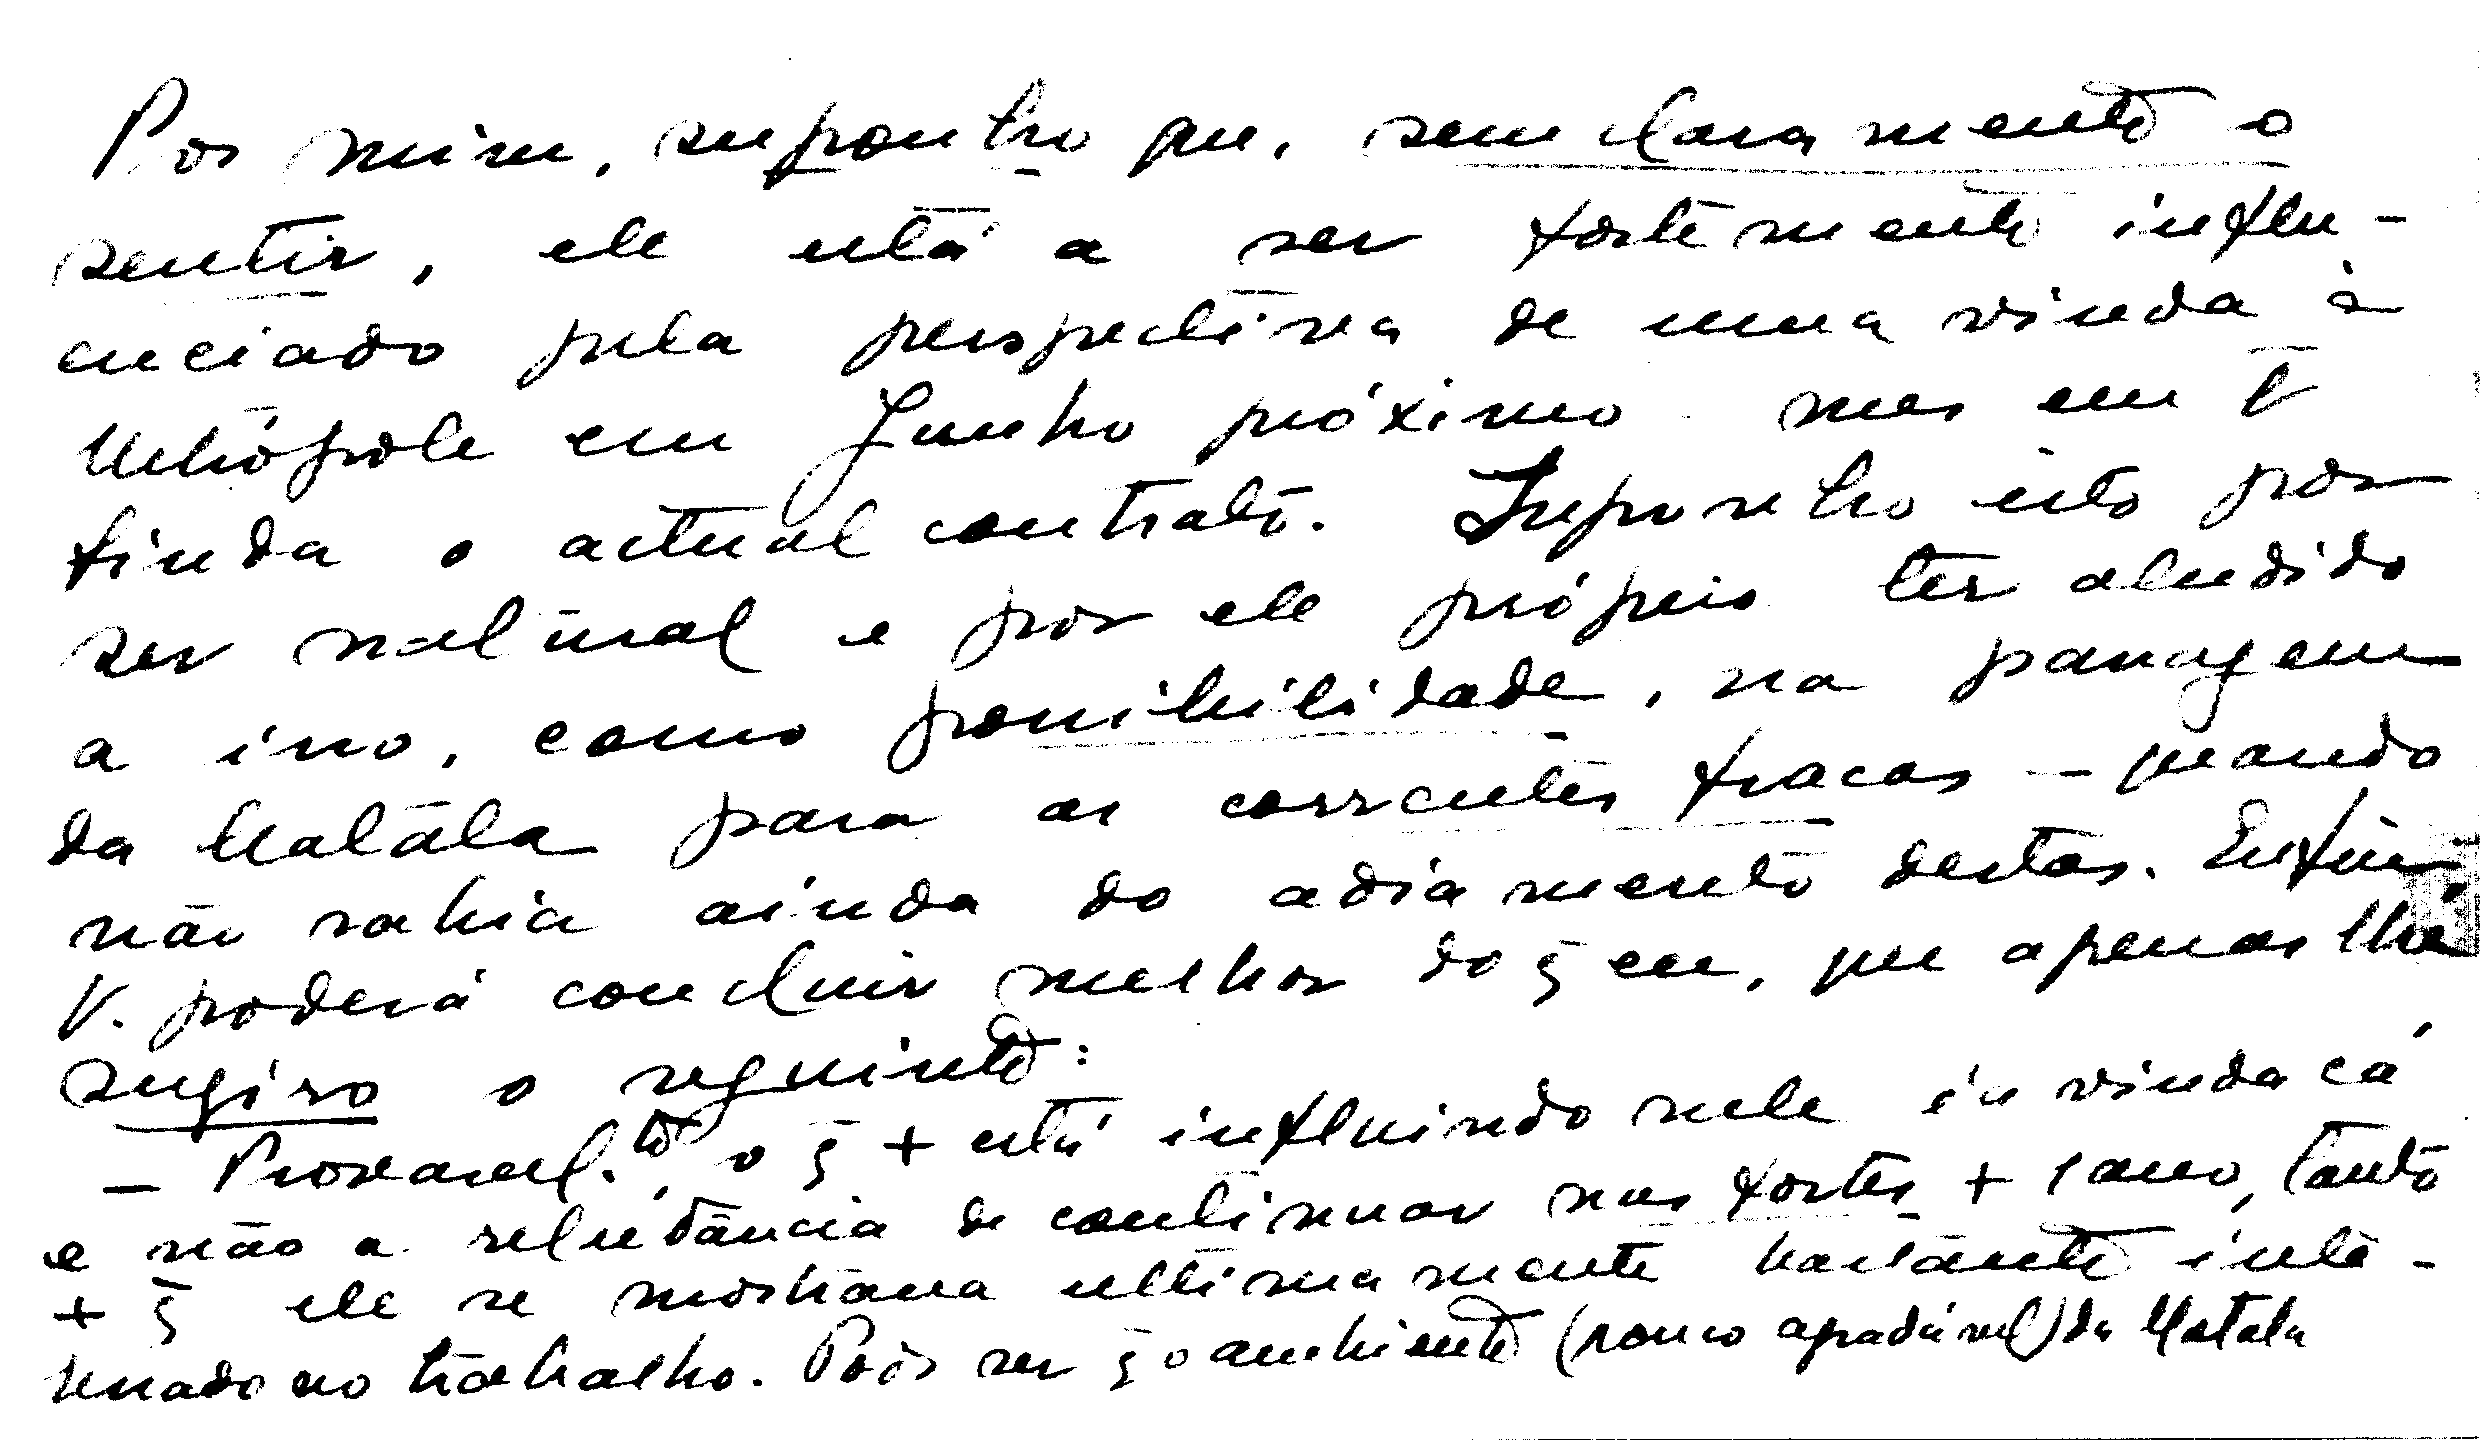 Por mim, suponho que, sem claramente o
sentir, ele está a ser fortemente influ-
enciado pela perspectiva de uma vinda à
Metrópole em Junho próximo mes em q̃
finda o actual contrato. Suponho isto por
ser natural e por ele próprio ter aludido
a isso, como possibilidade, na passagem
da Matala para as correntes fracas — quando
não sabia ainda do adiamento destas. Enfim,
V. poderá concluir melhor do q̃ eu, que apenas lhe
sugiro o seguinte:
— Provavel.te, o q̃ + está influindo nele é a vinda cá
e não a relutância de continuar nas fortes + 1 ano, tanto
+ q̃ ele se mostrava ultimamente bastante inte-
ressado no trabalho. Pode ser q̃ o ambiente (pouco agradável) da Matala